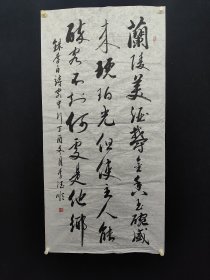 蘭陵美酒鬱金香玉碗盛
来琥珀光但使主人能
醉客不知何處是他鄉
錄李白詩客中行丁酉